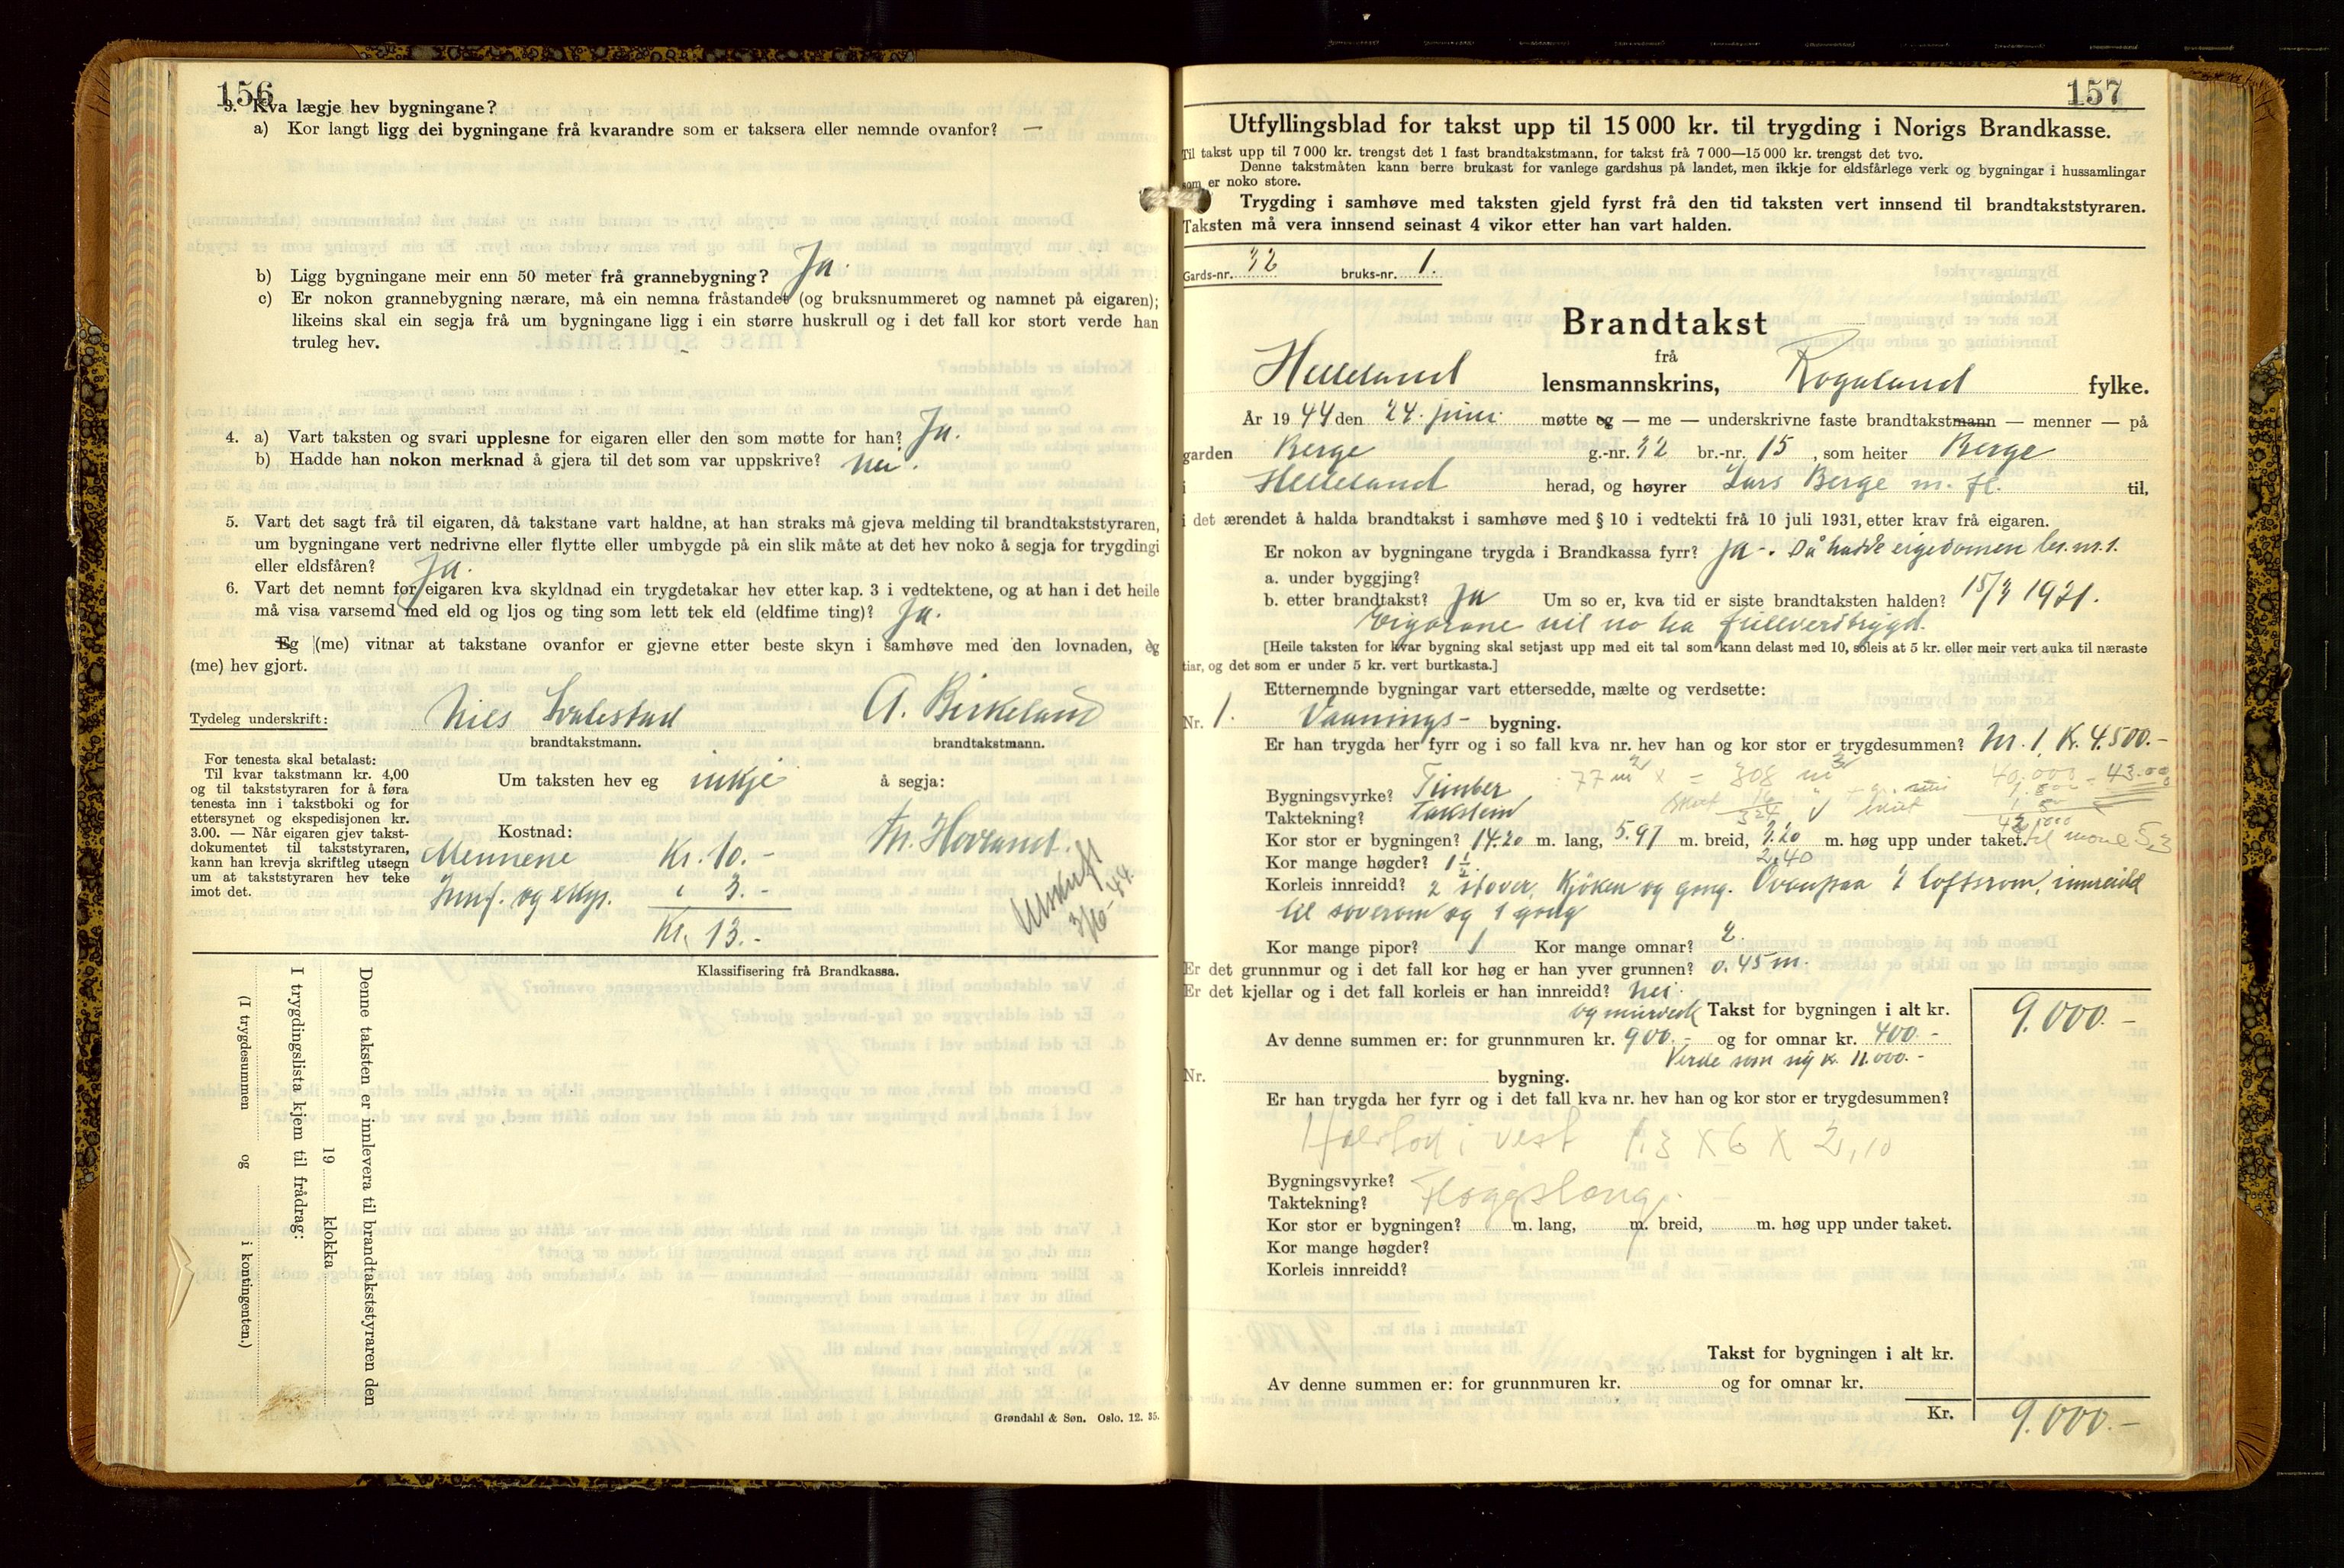 156
3. Kva lægje hev bygningane?
a) Kor langt ligg dei bygningane frå kvarandre som er taksera eller nemnde ovanfor? —
b) Ligg bygningane meir enn 50 meter frå grannebygning? Ja.
c) Er nokon grannebygning nærare, må ein nemna fråstandet (og bruksnummeret og namnet på eigaren);
likeins skal ein segja frå um bygningane ligg i ein större huskrull og i det fall kor stort verde han
truleg hev.
4. a) Vart taksten og svari upplesne for eigaren eller den som møtte for han? Ja.
b) Hadde han nokon merknad å gjera til det som var uppskrive? nei.
5. Vart det sagt frå til eigaren, då takstane vart haldne, at han straks må gjeva melding til brandtakststyraren,
um bygningane vert nedrivne eller flytte eller umbygde på ein slik måte at det hev noko å segja for trygdingi
eller eldsfåren? Ja.
6. Vart det nemnt for eigaren kva skyldnad ein trygdetakar hev etter kap. 3 i vedtektene, og at han i det heile
må visa varsemd med eld og ljos og ting som lett tek eld (eldfime ting)? Ja.
Eg (me) vitnar at takstane ovanfor er gjevne etter beste skyn i samhøve med den lovnaden, eg
(me) hev gjort.
Tydeleg underskrift: Nils Svalestad A. Birkeland
brandtakstmann. brandtakstmann.
For tenesta skal betalast:
Til kvar takstmann kr. 4,00
og til takststyraren for å føra
tenesta inn i takstboki og for
ettersynet og ekspedisjonen kr.
3.00. — Når eigaren gjev takst-
dokumentet til takststyraren,
kann han krevja skriftleg utsegn
um at takststyraren hev teke
imot det.
Um taksten hev eg inkje å segja:
Kostnad:
Mennene Kr. 10.-
Innf. og eksp. " 3.-
Kr. 13.-
Tr. Hovland.
Utskrift
3/6-44.
Klassifisering frå Brandkassa.
Denne taksten er innlevera til brandtakststyraren den
19 klokka
I trygdingslista kjem til frådrag:
(I trygdesummen og i kontingenten.)
Grøndahl & Søn. Oslo. 12. 35.
157
Utfyllingsblad for takst upp til 15 000 kr. til trygding i Norigs Brandkasse.
Til takst upp til 7 000 kr. trengst det 1 fast brandtakstmann, for takst frå 7 000—15 000 kr. trengst det tvo.
Denne takstmåten kann berre brukast for vanlege gardshus på landet, men ikkje for eldsfårlege verk og bygningar i hussamlingar
som er noko store.
Trygding i samhøve med taksten gjeld fyrst frå den tid taksten vert innsend til brandtakststyraren.
Taksten må vera innsend seinast 4 vikor etter han vart halden.
Gards-nr. 32 bruks-nr. 1.
Brandtakst
frå
Helleland lensmannskrins, Rogaland fylke.
År 1944 den 24. juni møtte eg — me — underskrivne faste brandtakstmann — menner — på
garden Berge g.-nr. 32 br.-nr. 15, som heiter Berge
i Helleland herad, og høyrer Lars Berge m. fl. til,
i det ærendet å halda brandtakst i samhøve med § 10 i vedtekti frå 10 juli 1931, etter krav frå eigaren.
Er nokon av bygningane trygda i Brandkassa fyrr? Ja -. Då hadde eigedomen br. nr. 1.
a. under byggjing?
b. etter brandtakst? Ja Um so er, kva tid er siste brandtaksten halden? 15/7 1921.
Eigarane vil no ha fullverdtrygd.
[Heile taksten for kvar bygning skal setjast upp med eit tal som kann delast med 10, soleis at 5 kr. eller meir vert auka til næraste
tiar, og det som er under 5 kr. vert burtkasta.]
Etternemnde bygningar vart ettersedde, mælte og verdsette:
Nr. 1. Vaanings- bygning.
Er han trygda her fyrr og i so fall kva nr. hev han og kor stor er trygdesummen? Nr. 1 K. 4.500.-
77 m² x = 308 m³
Bygningsvyrke? Timber
Taktekning? Takstein
Kor stor er bygningen? 14.20 m. lang, 5.97 m. breid, 3.20 m. høg upp under taket.
Kor mange høgder? 1½ 2.40
Korleis innreidd? 2 stover, Kjøken og gang. Ovenpaa 2 loftsrom, innreidd
til soverom og 1 gang
Kor mange pipor? 1 Kor mange omnar? 2.
Er det grunnmur og i det fall kor høg er han yver grunnen? 0.45 m.
Er det kjellar og i det fall korleis er han innreidd? Nei.
og murverk Takst for bygningen i alt kr. 9.000.-
Av denne summen er: for grunnmuren kr. 900.- og for omnar kr. 400.-
Verde som ny K. 11.000.-
Nr. bygning.
Er han trygda her fyrr og i det fall kva nr. hev han og kor stor er trygdesummen?
i vest 1.3 X 6 X 2,10
Bygningsvyrke?
Taktekning?
Kor stor er bygningen? m. lang, m. breid, m. høg upp under taket.
Kor mange høgder?
Korleis innreidd?
Takst for bygningen i alt kr.
Av denne summen er: for grunnmuren kr. og for omnar kr.
Kr. 9.000.-